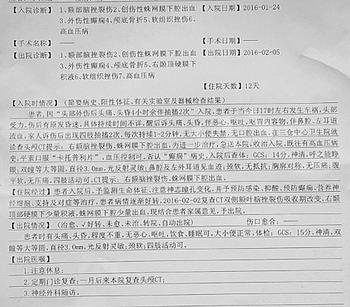 【入院诊断】 1.额部脑挫裂伤2.创伤性蛛网膜下腔出血 【入院日期】2016-01-24
3.外伤性癫痫4.颅底骨折5.软组织挫伤6.
高血压病
【手术名称】 —— 【手术日期】——
【出院诊断】 1.额部脑挫裂伤2.创伤性蛛网膜下腔出血 【出院日期】2016-02-05
3.外伤性癫痫4.颅底骨折5.右额顶硬膜下
积液6.软组织挫伤7.高血压病
【住院天数】12天
【入院时情况】（简要病史、阳性体征、有关实验室及器械检查结果）
患者,因"头部外伤后头痛、头昏4小时余伴抽搐2次"入院,患者于当日17时左右发生车祸,头部
受伤,伤后有原发昏迷,具体持续时间不详,醒后诉头痛、头昏,伴恶心、呕吐,呕吐胃内容物,伴鼻腔、左耳道
流血,家人诉伤后出现四肢抽搐2次,每次持续1-2分钟,无大小便失禁,无口腔出血,在三仓中心卫生院就
诊查头颅CT提示：右额脑挫裂伤,蛛网膜下腔出血,为进一步治疗,急送本院,收治入院,既往有高血压病
史,平素口服"卡托普利片",血压控制可,否认"癫痫"病史,入院后查体：GCS：14分,神清,呼之能睁
眼,双瞳等大等圆,直径3.0mm,光反射灵敏;鼻腔及左外耳道见血迹;颈软,无抵抗;胸廓对称,无压痛;腹
平软,无压痛,四肢活动可,CT提示：右额脑挫裂伤、蛛网膜下腔出血。
【住院经过】患者入院后,予监测生命体征、注意神志瞳孔变化,并予预防感染,抑酸,预防癫痫,营养神
经细胞,支持及对症等治疗,患者病情逐渐好转,2016-02-02复查CT双侧额叶脑挫裂伤吸收期改变,右额
顶部硬膜下少量积液,蛛网膜下腔少量出血,现结合患者家属意见,予出院。
【出院情况】（治愈,√好转,未愈,未治,转院,自动出院） 伤口愈合：——
患者时有头痛、头昏,程度不重,无恶心、呕吐,饮食、睡眠可,大小便正常,体检：GCS：15分,神清,双
瞳等大等圆,直径3.0mm,光反射灵敏;颈软;四肢活动可。
【出院医嘱】
1.注意休息;
2.定期门诊复查;一月后来本院复查头颅CT;
3.神经外科随访。